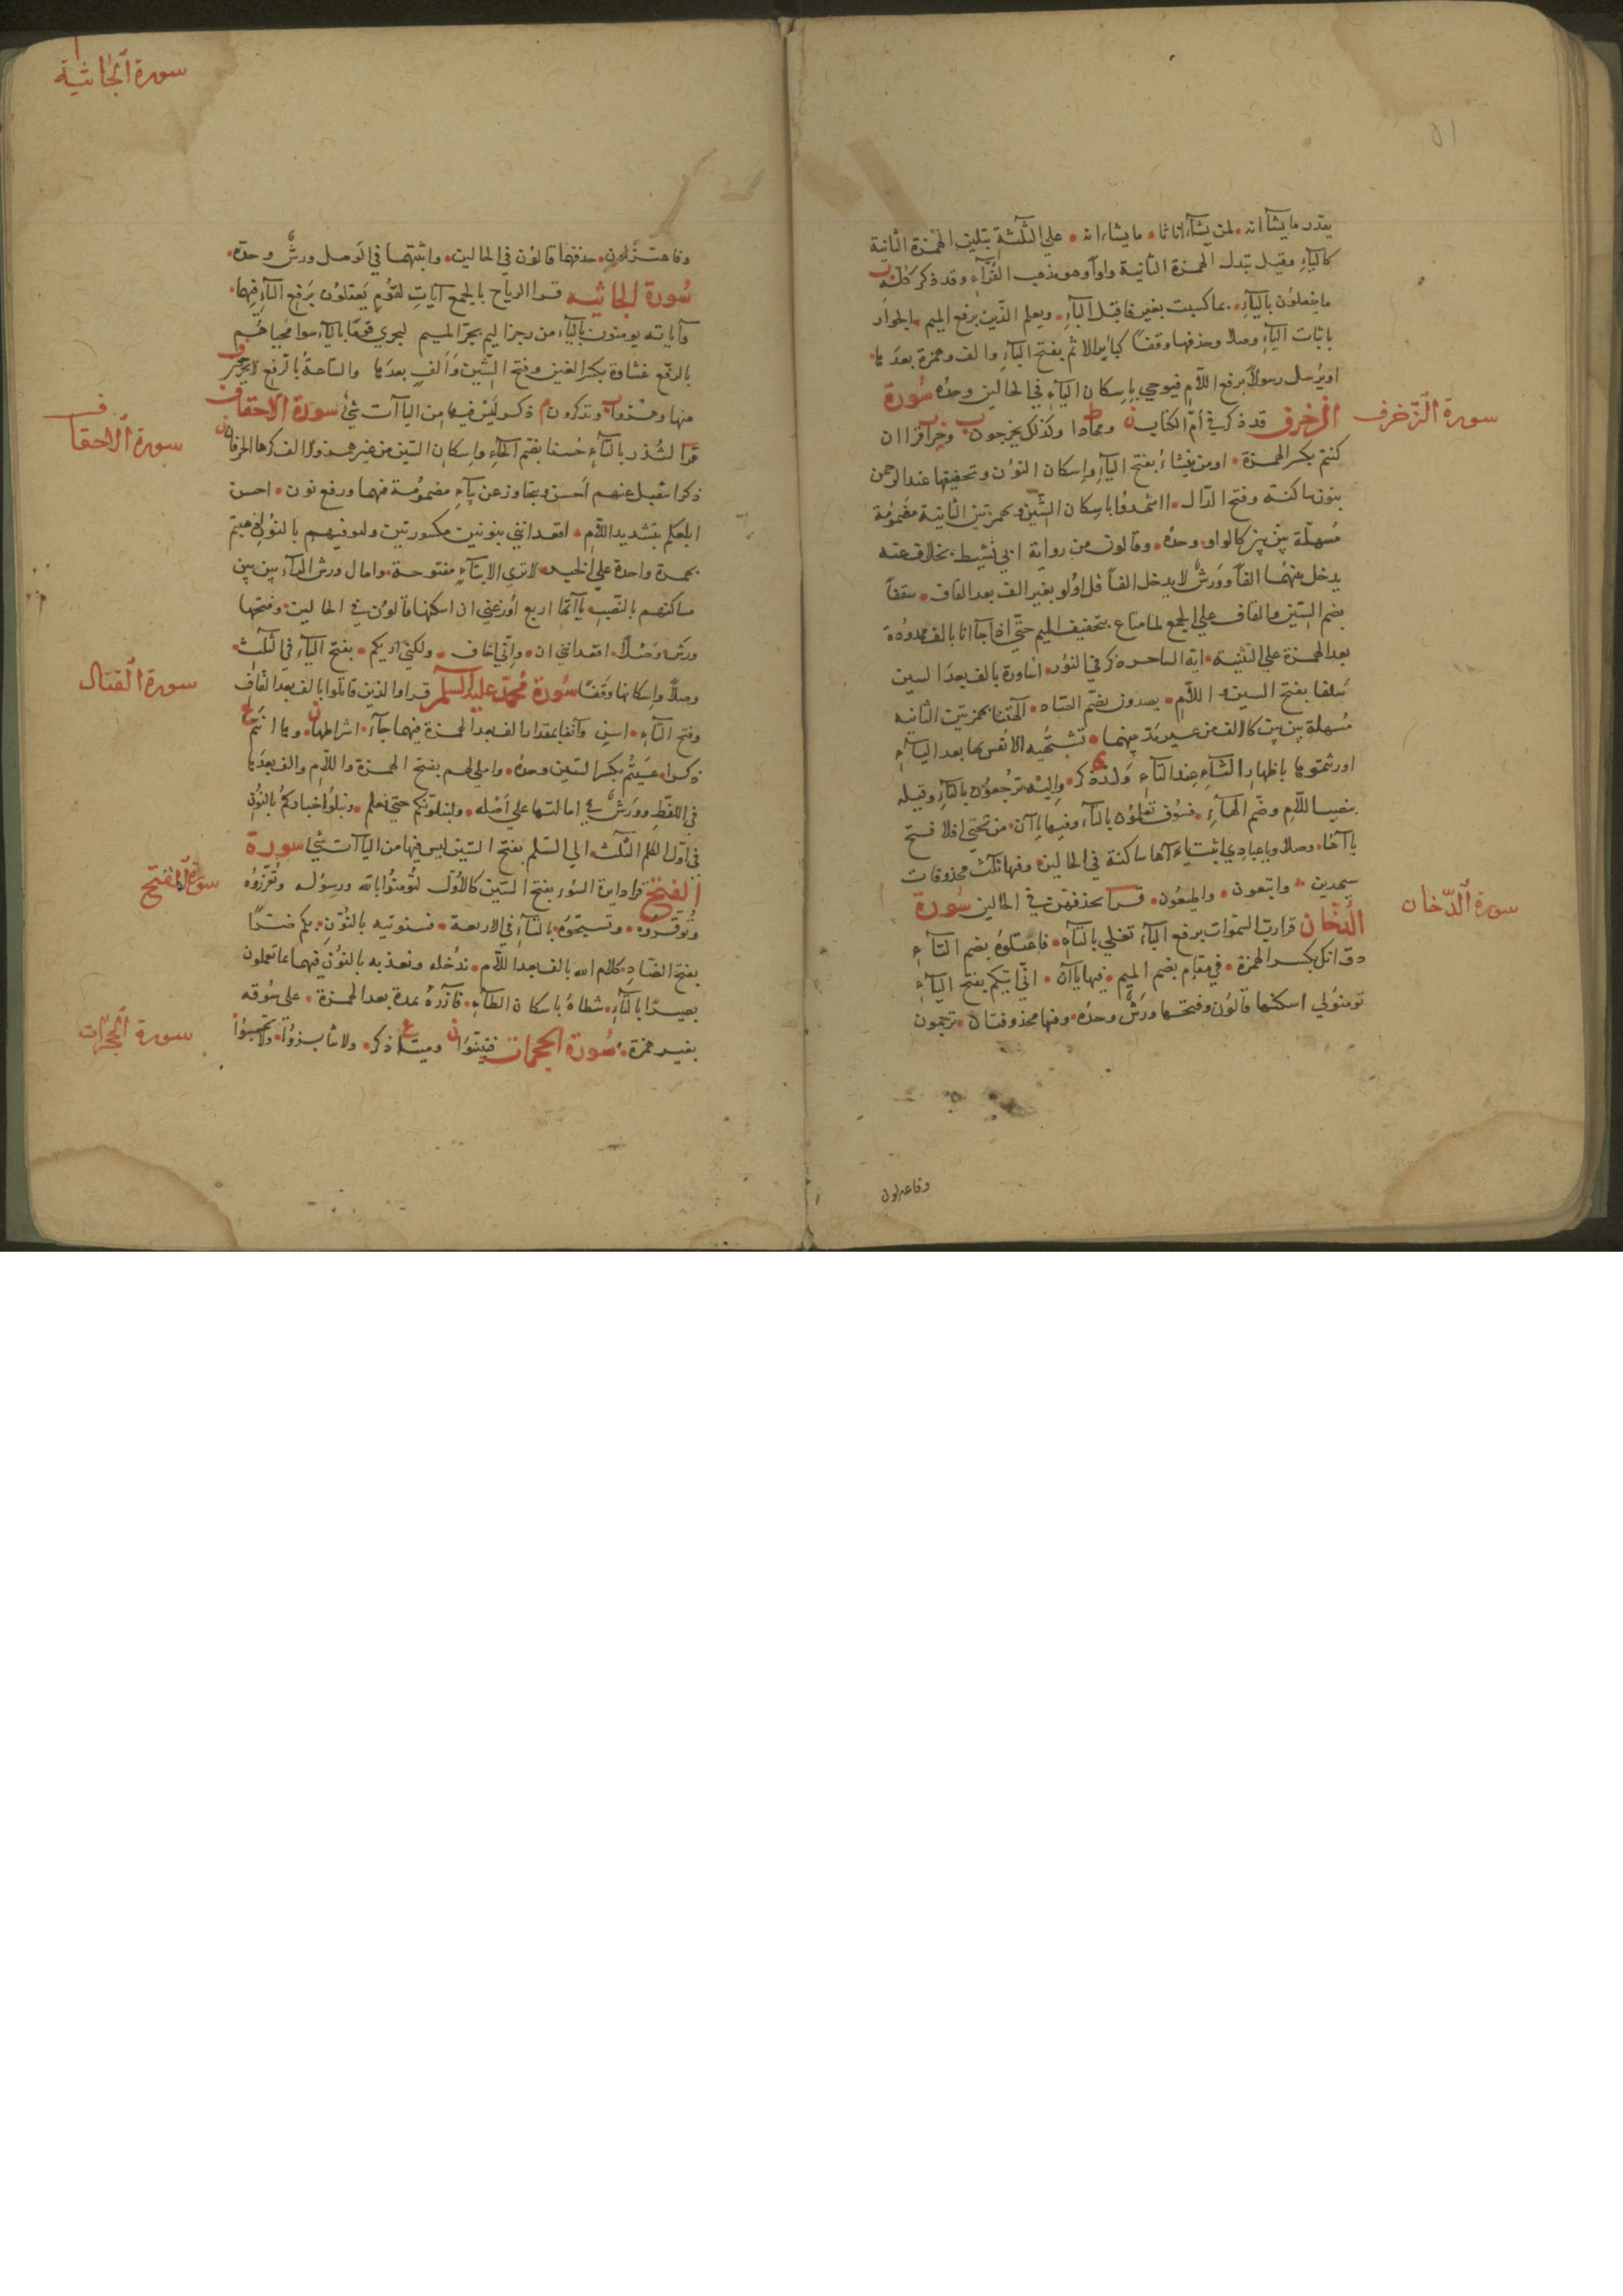 ٥١
يقدر ما يشآ انه • لمن يشآء اناثا • ما يشاء انه • علي الثلثة بتليين الهمزة الثانية
كاليآء وقيل تبدل الهمزة الثانية واوا وهو مذهب القرآء وقد ذكر كله
ما يفعلون باليآء • بما كسبت بغير فا قبل البآء • ويعلم الذين برفع الميم • الجوار
باثبات اليآء وصلا وحذفها وقفا كبائر الاثم بفتح البآء والف وهمزة بعدها •
او يرسل رسولا برفع اللام فيوحي باسكان اليآء في الحالين وحده سورة
سورة الزخرف
الزخرف قد ذكر في ام الكتاب ومهادا وكذلك يخرجون وجزا قرا ان
كنتم بكسر الهمزة • اومن ينشاء بفتح اليآء واسكان النون وتخفيفها عند الرحمن
بنون ساكنة وفتح الدال • ااشهدوا باسكان الشين وبهمزتين الثانية مضمومة
مسهلة بين بين كالواو • وحده • وقالون من رواية ابي نشيط بخلاف عنه
يدخل بينهما الفا وورش لا يدخل الفا قل اولو بغير الف بعد القاف • سقفا
بضم السين والقاف علي الجمع لما متاع بتخفيف الميم حتى اذا جآانا بالف ممدودة
بعد الهمزة علي التثنية • ايه الساحر ذكر في النور • اساورة بالف بعد السين
سلفا بفتح السين واللام • يصدون بضم الصاد • آلهتنا بهمزتين الثانيه
مسهلة بين بين كالالف من غير مد بينهما • تشتهيه الانفس بها بعد اليآء
اورثتموها باظهار الثآء عند التآء ولد ذكر • واليه ترجعون بالتآء وقيله
بنصب اللام وضم الهآء • فسوف تعلمون بالتآء وفيها ياآن • من تحتي افلا فتح
ياآها • وصلا ويا عبادي اثبت ياءآها ساكنة في الحالين وفيها ثلث محذوفات
سيهدين • واتبعون • واطيعون • قرا بحذفهن في الحالين سورة
سورة الدخان
الدخان قرا رب السموات برفع البآء تغلي بالتآء • فاعتلوه بضم التآء
ذق انك بكسر الهمزة • في مقام بضم الميم • فيها ياآن • اني آتيكم بفتح اليآء
تومنوا لي اسكنها قالون وفتحها ورش وحده • وفيها محذوفتان • ترجمون
وفاعتزلون
سورة الجاثية
وفاعتزلون • حذفهما قالون في الحالين • واثبتهما في الوصل ورش وحده •
سورة الجاثيه قرا الرياح بالجمع آيات لقوم يعقلون برفع التآء فيهما •
وآياته يومنون باليآء من رجز اليم بجر الميم ليجزي قوما باليآء سوا محياهم
بالرفع غشاوة بكسر الغين وفتح الشين والف بعدها والساعة بالرفع لا يخرجون
منها وهزوا وتذكرون ذكر وليس فيها من الياآت شئ سورة الاحقاف
سورة الاحقاف
قرا لتنذر بالتآء حسنا بضم الحآء واسكان السين من غير همز ولا الف كرها الحرفان
ذكر ايتقبل عنهم احسن ويتجاوز عن بيآء مضمومة فيهما ورفع نون • احسن
ابلغكم بتشديد اللام • اتعدانني بنونين مكسورتين ولنوفيهم بالنون اذهبتم
بهمزة واحدة علي الخبر • لا تري الا بتآء مفتوحة • وامال ورش الرآء بين بين
مساكنهم بالنصب ياآتها اربع اوزعني ان اسكنها قالون في الحالين • وفتحها
ورش وصلا • اتعدانني ان • واني اخاف • ولكني اريكم • بفتح اليآء في الثلث
وصلا واسكانها وقفا سورة محمد عليه السلم قرا والذين قاتلوا بالف بعد القاف
سورة القتال
وفتح التآء • اسن وآنفا بمقدار الف بعد الهمزة فيهما جآء • اشراطها • وها انتم
ذكرا • عسيتم بكسر السين وحده • واملي لهم بفتح الهمزة واللام والف بعدها
في اللفظ وورش في امالتها علي اصله • ولنبلونكم حتي نعلم • ونبلوا اخباركم بالنون
في اول الكلم الثلث • الي السلم بفتح السين ليس فيها من الياآت شئ سورة
سورة الفتح
الفتح قرا دايرة السوء بفتح السين كالاول لتومنوا بالله ورسوله وتعزروه
وتوقروه • وتسبحوه بالتآء في الاربعة • فسنوتيه بالنون • بكم ضرا
بفتح الضاد • كلام الله بالف بعد اللام • ندخله ونعذبه بالنون فيهما بما تعملون
بصيرا بالتآء • شطاه باسكان الطآء • فآزره بمدة بعد الهمزة • علي سوقه
بغير همزة • سورة الحجرات فتبينوا وميتا ذكر • ولا تنابزوا • ولا تجسسوا
سورة الحجرات